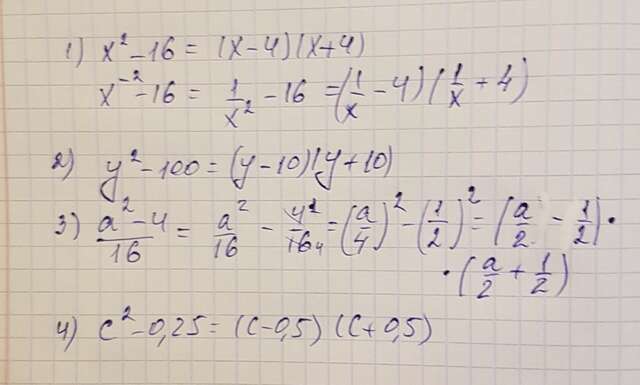 1) x² - 16 = (x - 4)(x + 4)
x⁻² - 16 = 1/x² - 16 = (1/x - 4)(1/x + 4)
2) y² - 100 = (y - 10)(y + 10)
3) (a² - 4)/16 = a²/16 - 4¹/16₄ = (a/4)² - (1/2)² = (a/2 - 1/2) ·
· (a/2 + 1/2)
4) c² - 0,25 = (c - 0,5)(c + 0,5)